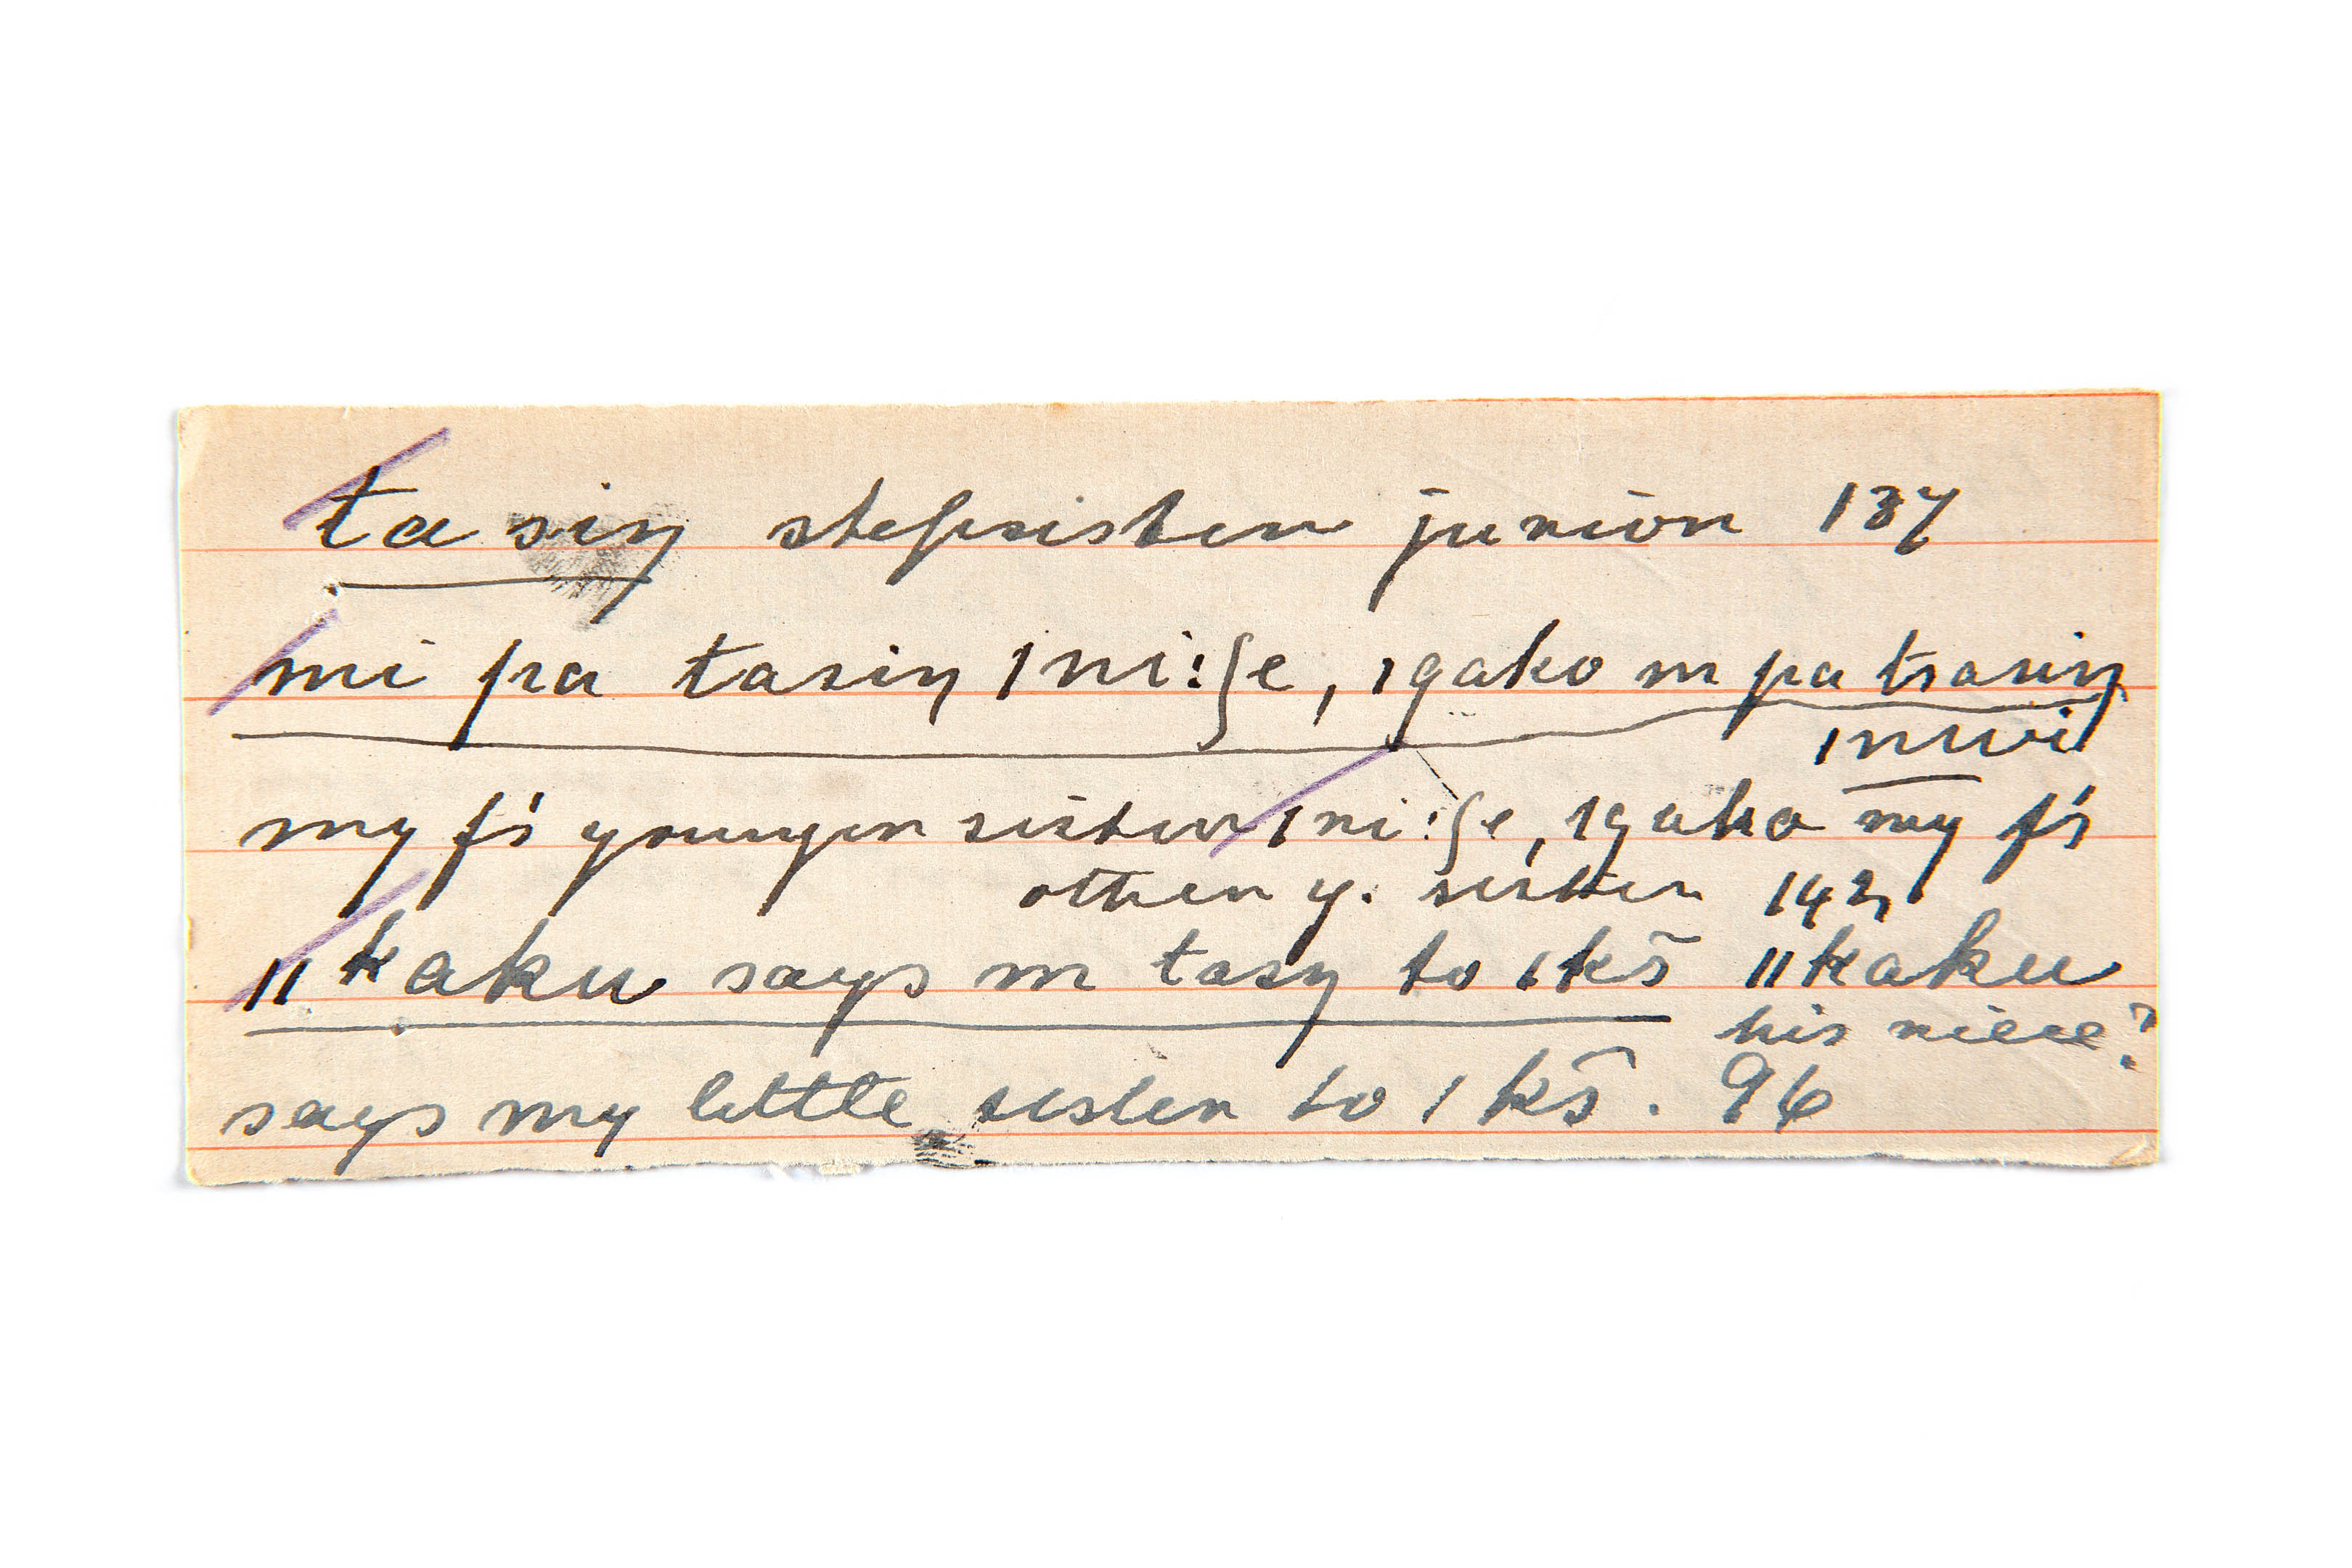 tasiŋ stepsister junior 137
mi pa tasiŋ ǀni:ʃe, ǀgako m pa tsasiŋ
ǀnwi
my f's younger sister ǀni:ʃe, ǀgako my f's
other y. sister 142
ǁkaku says m tasŋ to ǀkš̄ ǁkaku
his niece?
says my little sister to ǀkš̄. 96